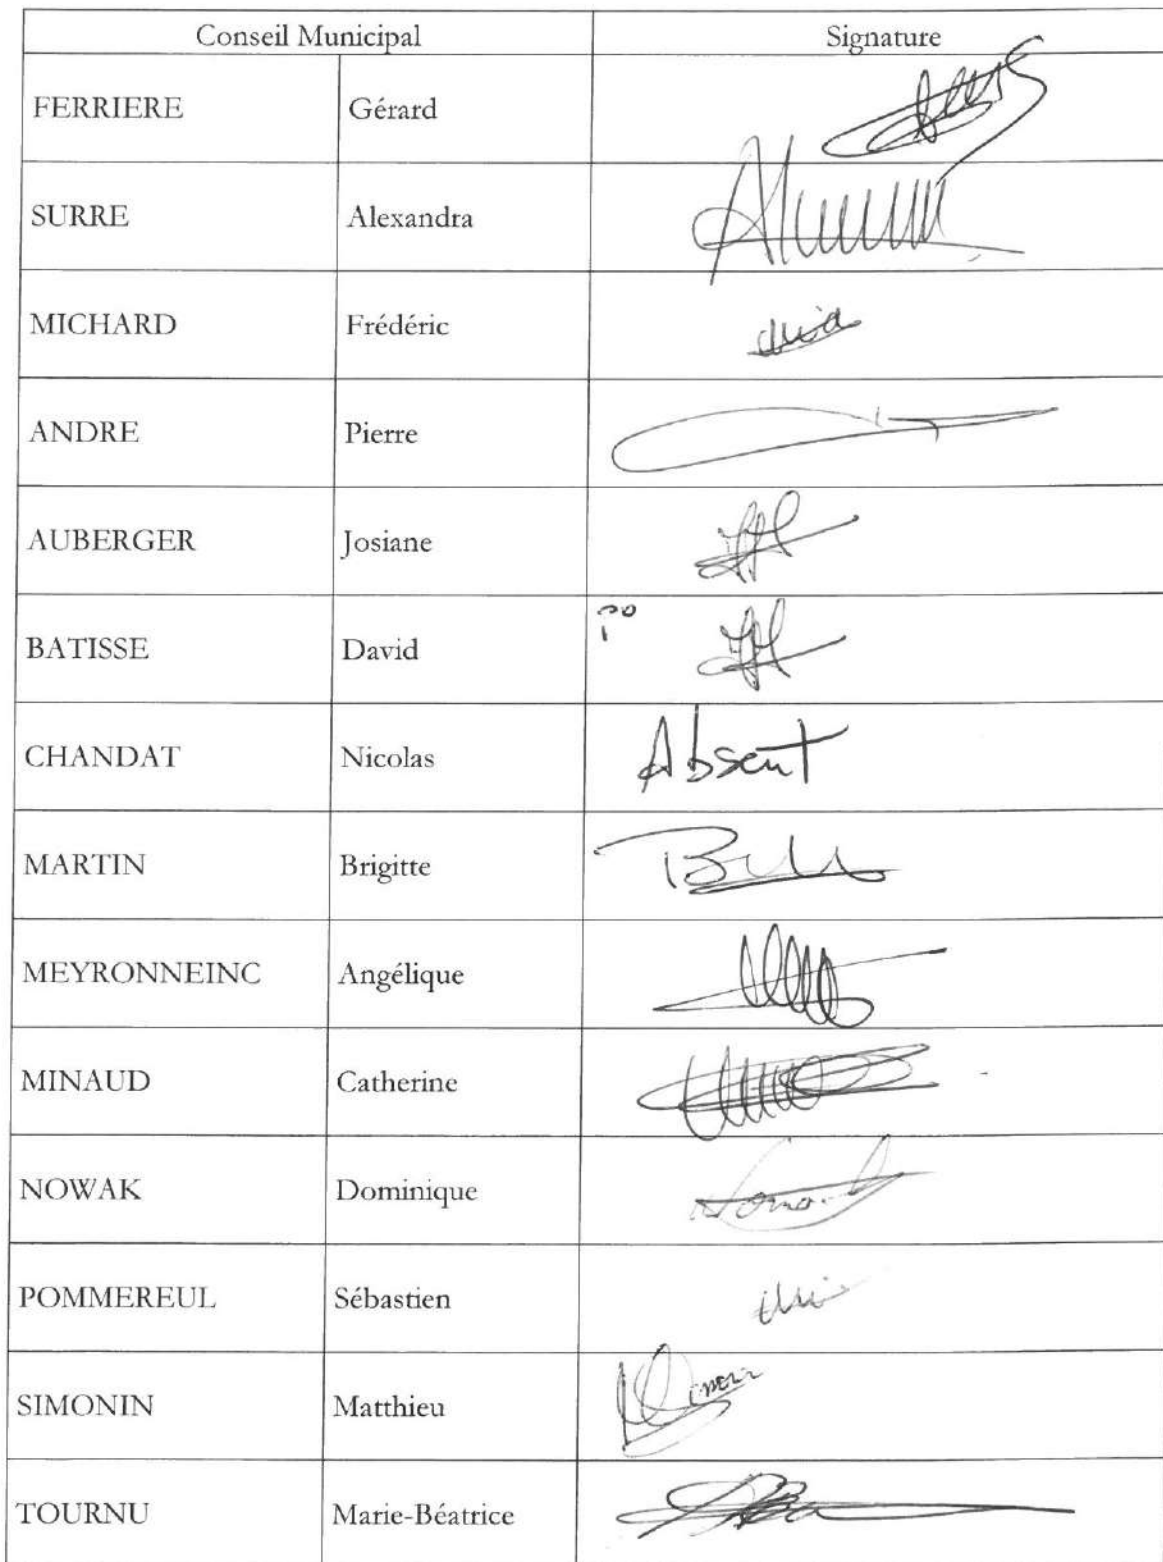 Conseil Municipal Signature
FERRIERE Gérard
SURRE Alexandra
MICHARD Frédéric
ANDRE Pierre
AUBERGER Josiane
BATISSE David
CHANDAT Nicolas Absent
MARTIN Brigitte
MEYRONNEINC Angélique
MINAUD Catherine
NOWAK Dominique
POMMEREUL Sébastien
SIMONIN Matthieu
TOURNU Marie-Béatrice